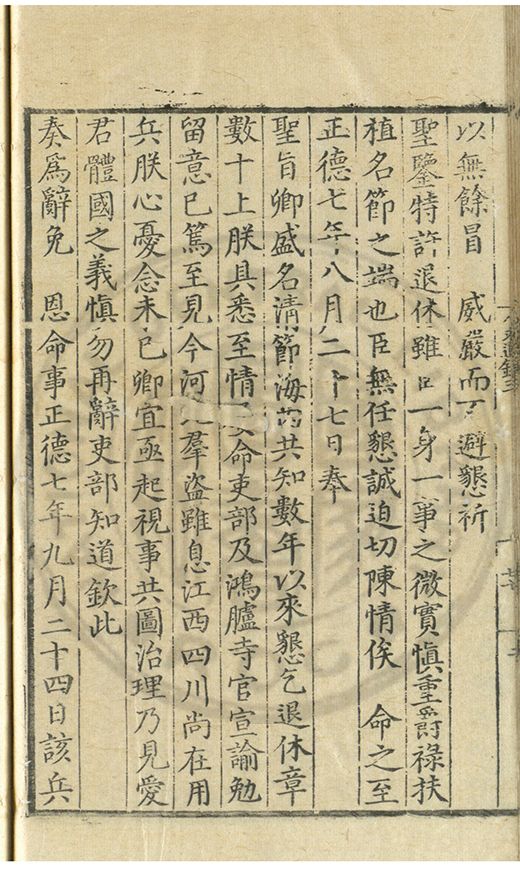 以無餘冒　威嚴而不避懇祈
聖鑒特許退休雖臣一身一事之微實慎重爵祿扶
植名節之端也臣無任懇誠迫切陳情俟　命之至
正德七年八月二十七日奉
聖旨卿盛名清節海內共知數年以來懇乞退休章
數十上朕具悉至情已命吏部及鴻臚寺官宣諭勉
留意已篤至見今河北羣盜雖息江西四川尚在用
兵朕心憂念未已卿宜亟起視事共圖治理乃見愛
君體國之義慎勿再辭吏部知道欽此
奏為辭免　恩命事正德七年九月二十四日該兵